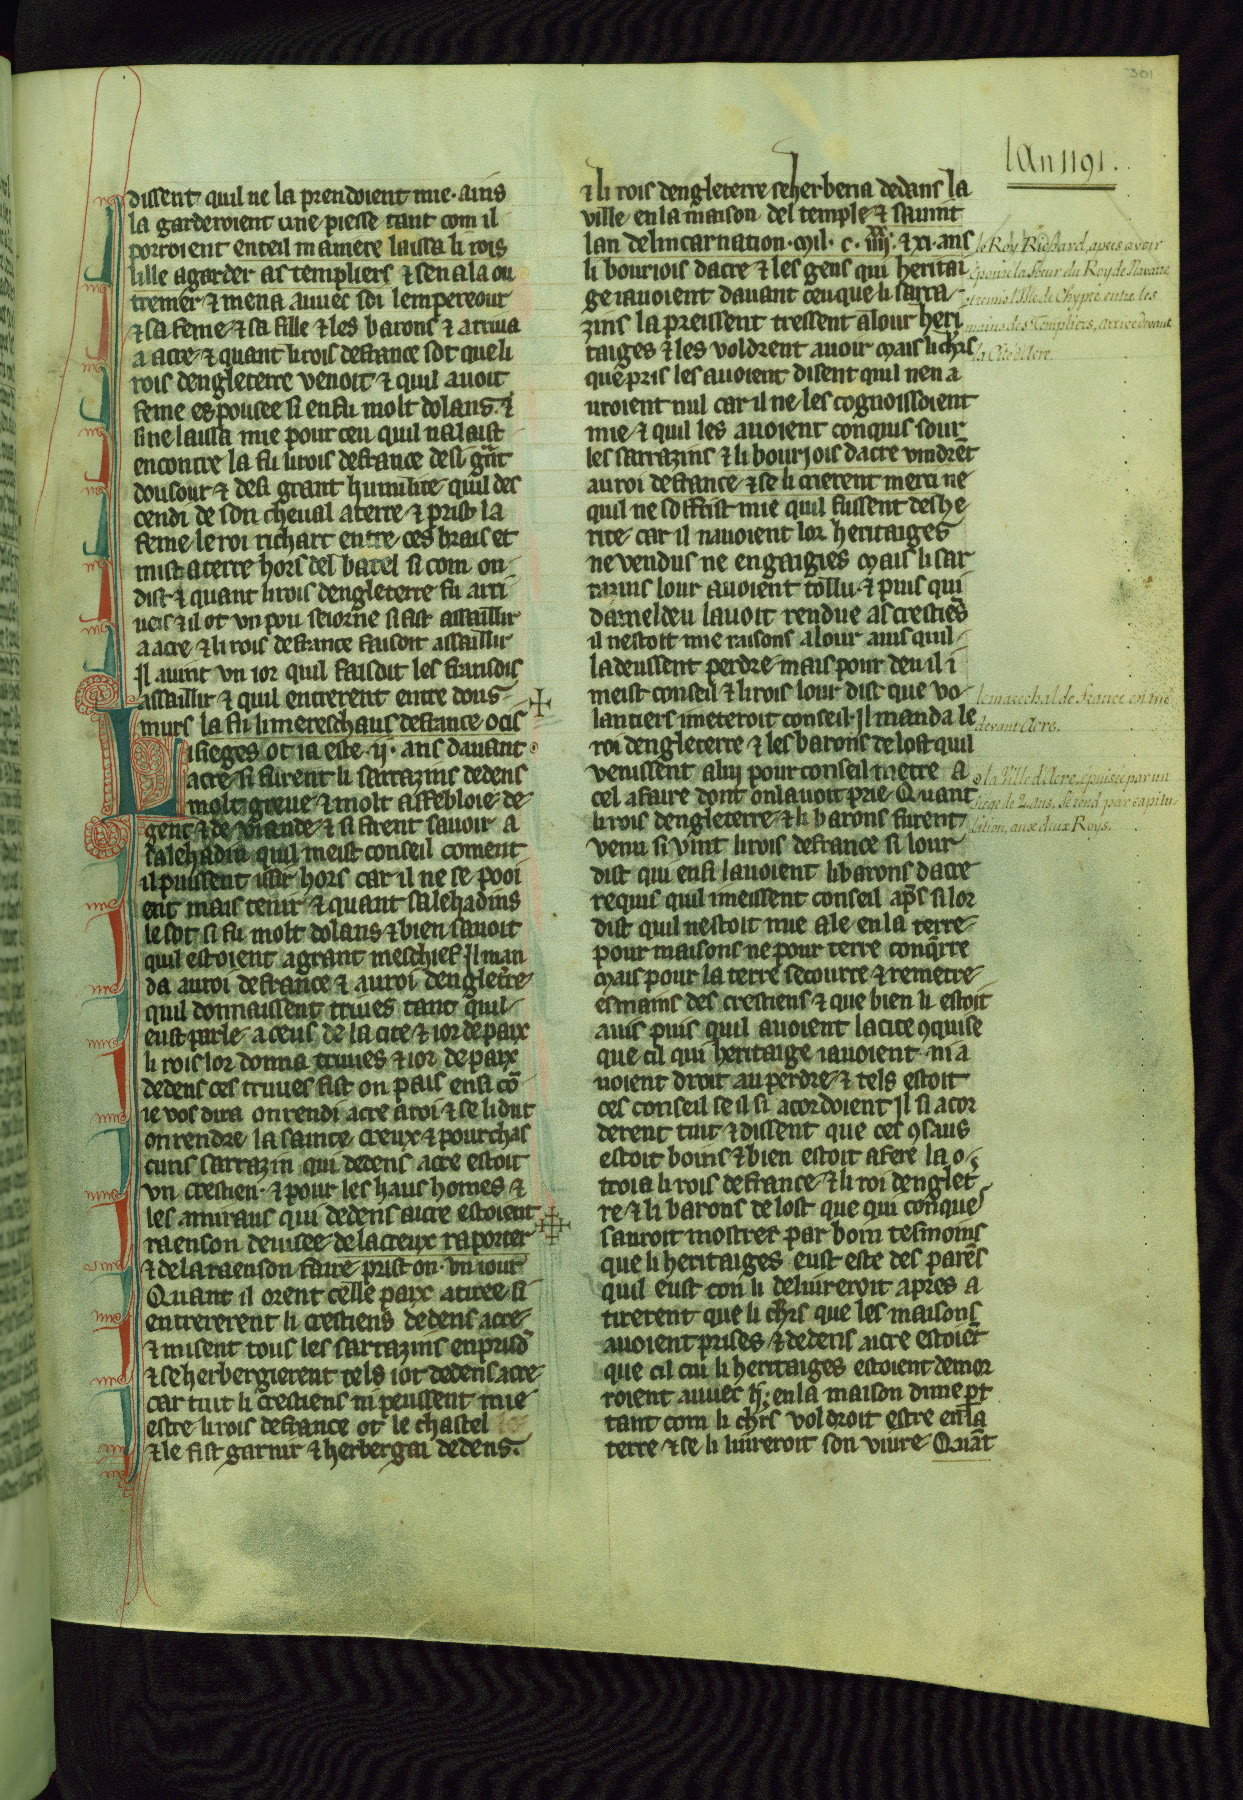 301
lAn 1191.
dissent quil ne la prendoient mie. ains
la garderoient une piesse tant com il
porroient en teil maniere laissa li rois
lille a garder as templiers ⁊ sen ala ou
tremer ⁊ mena auuec soi lempereour
⁊ sa feme ⁊ sa fille ⁊ les barons ⁊ arriua
a acre ⁊ quant li rois de france sot que li
rois dengleterre venoit ⁊ quil auoit
feme espousee si en fu molt dolans. ⁊
si ne laissa mie pour ceu quil nalaist
encontre la fu li rois de france de si grāt
dousour ⁊ de si grant humilite quil des
cendi de son cheual a terre ⁊ prist la
feme le roi richart entre ces brais et
mist a terre hors del batel si com on
dist ⁊ quant li rois dengleterre fu arri
ueis ⁊ il ot vn pou seiorne si fist assaillir
a acre ⁊ li rois de france faisoit assaillir
Il auint vn ior quil faisoit les fransois
assaillir ⁊ quil entrerent entre dous
murs la fu li mereschaus de france ocis
L isieges ot ia este .ij. ans dauant
acre si furent li sarrazins dedens
molt greue ⁊ molt affebloie de
gent ⁊ de viande ⁊ si firent sauoir a
salehadin quil meist conseil coment
il puissent issir hors car il ne se pooi
ent mais tenir ⁊ quant salehadins
le sot si fu molt dolans ⁊ bien sauoit
quil estoient a grant meschief Il man
da au roi de france ⁊ au roi dengleterre
quil donnaissent triues tant quil
eust parle a ceus de la cite ⁊ ior de paix
li rois lor donna truues ⁊ ior de paix
dedens ces truues fist on pais ensi cō
ie vos dira on rendi acre a roi ⁊ se li dut
on rendre la sainte creux ⁊ pour chas
cuns sarrazin qui dedens acre estoit
vn crestien. ⁊ pour les haus homes ⁊
les amiraus qui dedens aicre estoient
raenson deuisee de la creux raporter
⁊ de la raenson faire prist on vn iour
Quant il orent celle paix atiree si
entrererent li crestiens dedens acre
⁊ misent tous les sarrazins en prisō
⁊ se herbergierent tels i ot dedens acre
car tuit li crestiens ni peussent mie
estre li rois de france ot le chastel
⁊ le fist garnir ⁊ herbergai dedens.
⁊ li rois dengleterre se herberia dedans la
ville en la maison del temple ⁊ sauint
lan delincarnation. mil. c. iiij.xx ⁊ xi. ans
li bouriois dacre ⁊ les gens qui heritai
ge i auoient dauant ceu que li sarra
zins la preissent tressent a lour heri
taiges ⁊ les voldrent auoir mais li chrs
que pris les auoient disent quil nen a
uroient nul car il ne les cognoissoient
mie ⁊ quil les auoient conquis sour
les sarrazins ⁊ li bourjois dacre vindrēt
au roi de france ⁊ se li crierent merci ne
quil ne soffrist mie quil fussent deshe
rite car il nauoient lor heritaiges
ne vendus ne engaigies mais li sar
razins lour auoient tollu ⁊ puis qui
dameldeu lauoit rendue as crestiēs
il nestoit mie raisons a lour auis quil
la deussent perdre mais pour deu il i
meist conseil ⁊ li rois lour dist que vo
lantiers i meteroit conseil. Il manda le
roi dengleterre ⁊ les barons de lost quil
venissent a lui pour conseil metre a
cel afaire dont on lauoit prie Quant
li rois dengleterre ⁊ li barons furent
venu si vint li rois de france si lour
dist qui ensi lauoient li barons dacre
requis quil i meissent conseil apˢs si lor
dist quil nestoit mie ale en la terre
pour maisons ne pour terre conq̄rre
mais pour la terre secourre ⁊ remetre
es mains des crestiens ⁊ que bien li estoit
auis puis quil auoient la cite ꝯquise
que cil qui heritaige i auoient ni a
uoient droit au perdre ⁊ tels estoit
ces conseil se il si acordoient Il si acor
derent tuit ⁊ dissent que ces ꝯsaus
estoit boins ⁊ bien estoit a fere la o
troia li rois de france ⁊ li roi denglet
re ⁊ li barons de lost que qui conques
sauroit mostrer par boin tesmoins
que li heritaiges eust este des parēs
quil eust con li deliureroit apres a
tirerent que li chrs que les maisons
auoient prises ⁊ dedens aicre estoiēt
que cil cui li heritaiges estoient demor
roient auuec en la maison dune part
tant com li chrs voldroit estre en la
terre ⁊ se li liureroit son viure Quāt
le Roy Richard, apres avoir
epousé la Soeur du Roy de Navarre
et remis l'Isle de Chypre entre les
mains des Templiers, arrive devant
la Cité d'Acre.
le marechal de france est tué
devant Acre.
la Ville d'Acre, epuisée par un
siége de 2 ans, se rend par capitu-
lation, aux deux Roys.